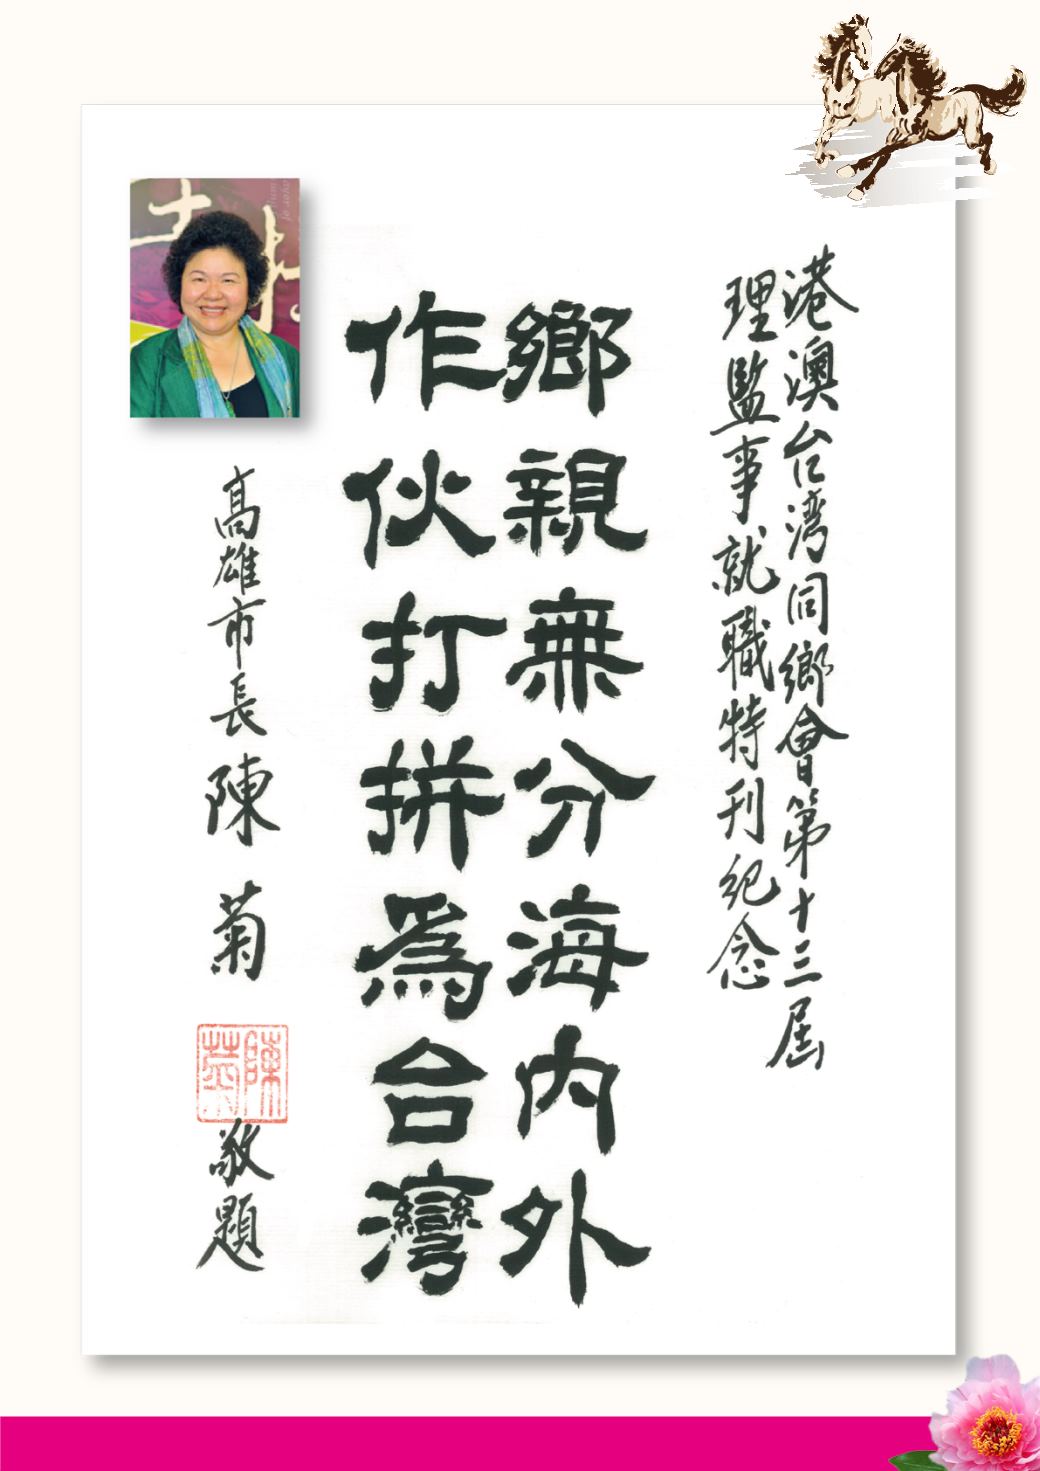 港澳台湾同鄉會第十三屆
理監事就職特刊紀念
鄉親無分海內外
作伙打拼為台灣
高雄市長陳菊
陳菊
敬題